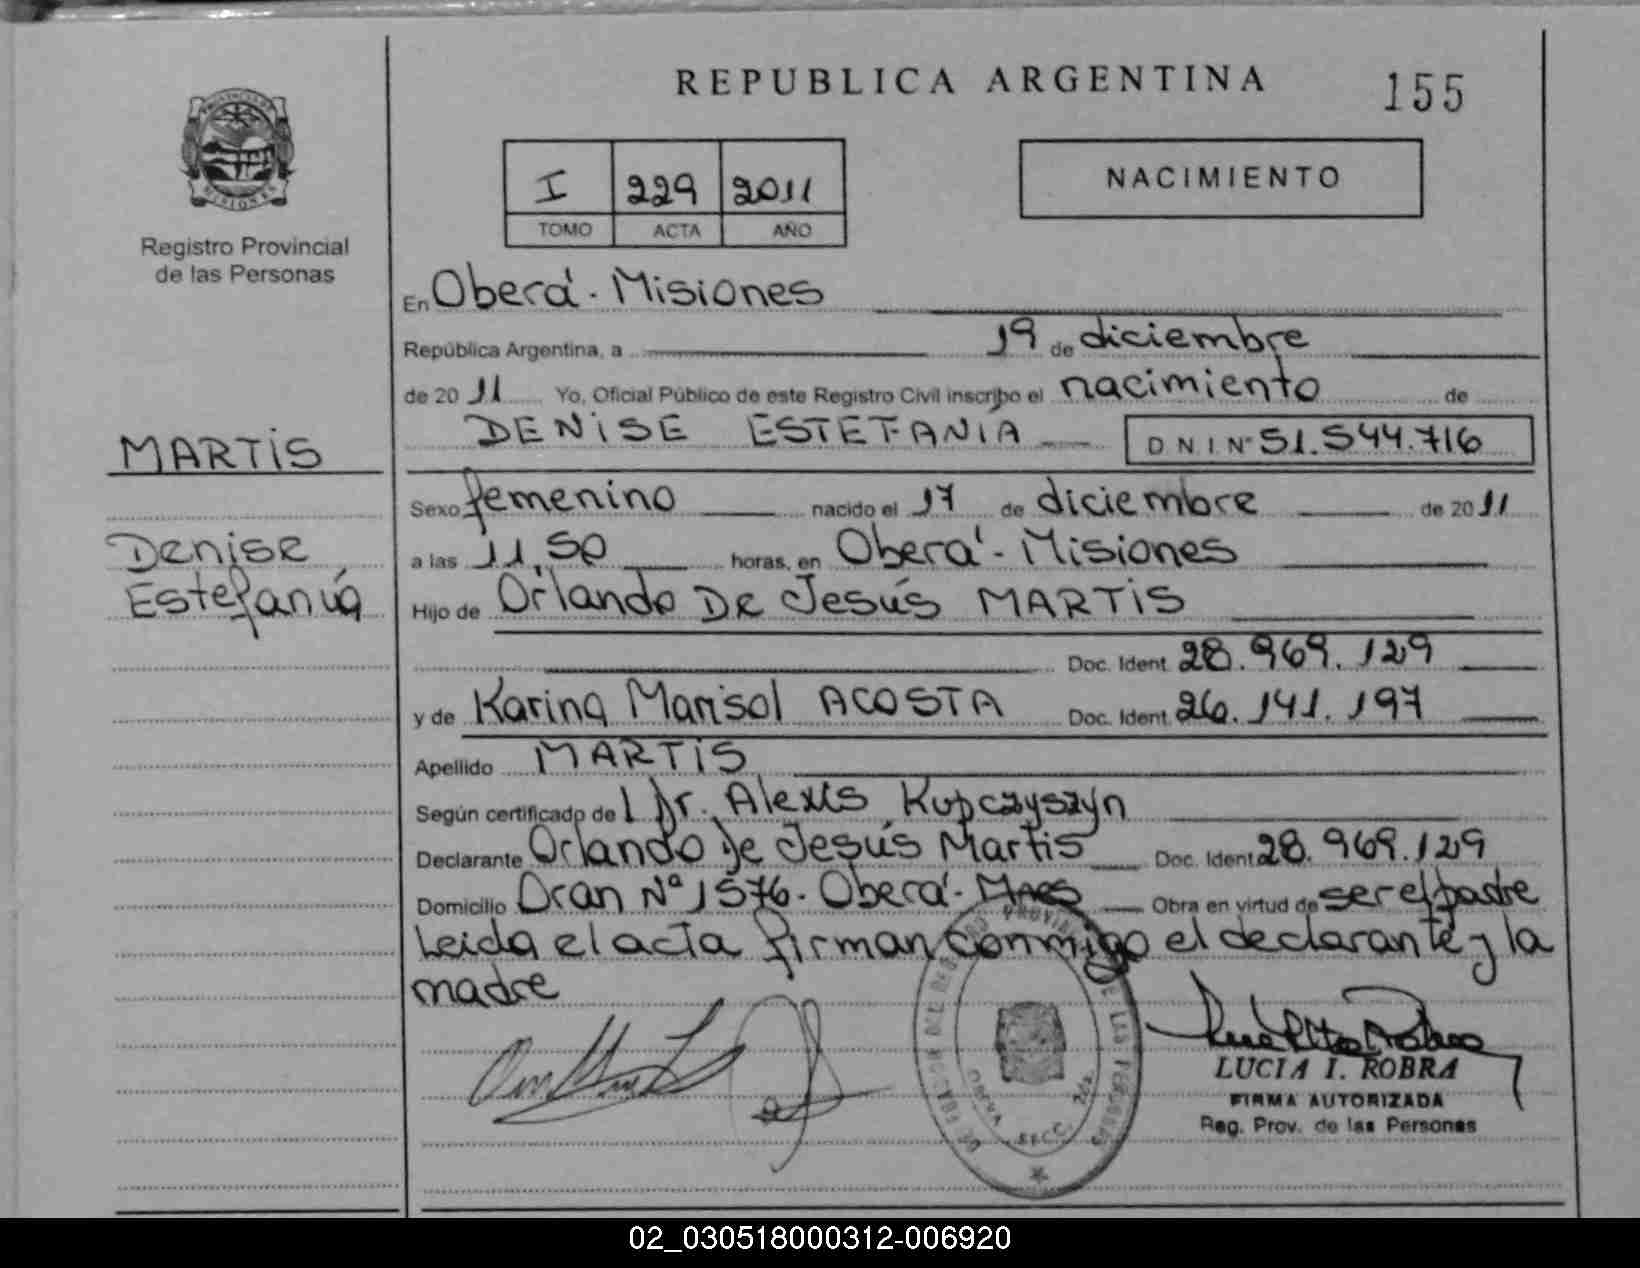 REPUBLICA ARGENTINA
155
Registro Provincial
de las Personas
I 229 2011
TOMO ACTA AÑO
NACIMIENTO
En Oberá - Misiones
República Argentina, a 19 de diciembre
de 20 11 Yo, Oficial Público de este Registro Civil inscribo el nacimiento de
DENISE ESTEFANIA D N I Nº 51.544.716
MARTIS
Denise
Estefanía
Sexo femenino nacido el 17 de diciembre de 20 11
a las 11,50 horas, en Oberá - Misiones
Hijo de Orlando De Jesús MARTIS
Doc. Ident. 28.969.129
y de Karina Marisol ACOSTA Doc. Ident. 26.141.197
Apellido MARTIS
Según certificado de Dr. Alexis Kupczyszyn
Declarante Orlando De Jesús Martis Doc. Ident. 28.969.129
Domicilio Oran Nº 1576 - Oberá - Mnes Obra en virtud de ser el padre
Leida el acta firman conmigo el declarante y la
madre
LUCIA I. ROBRA
FIRMA AUTORIZADA
Reg. Prov. de las Personas
02_030518000312-006920